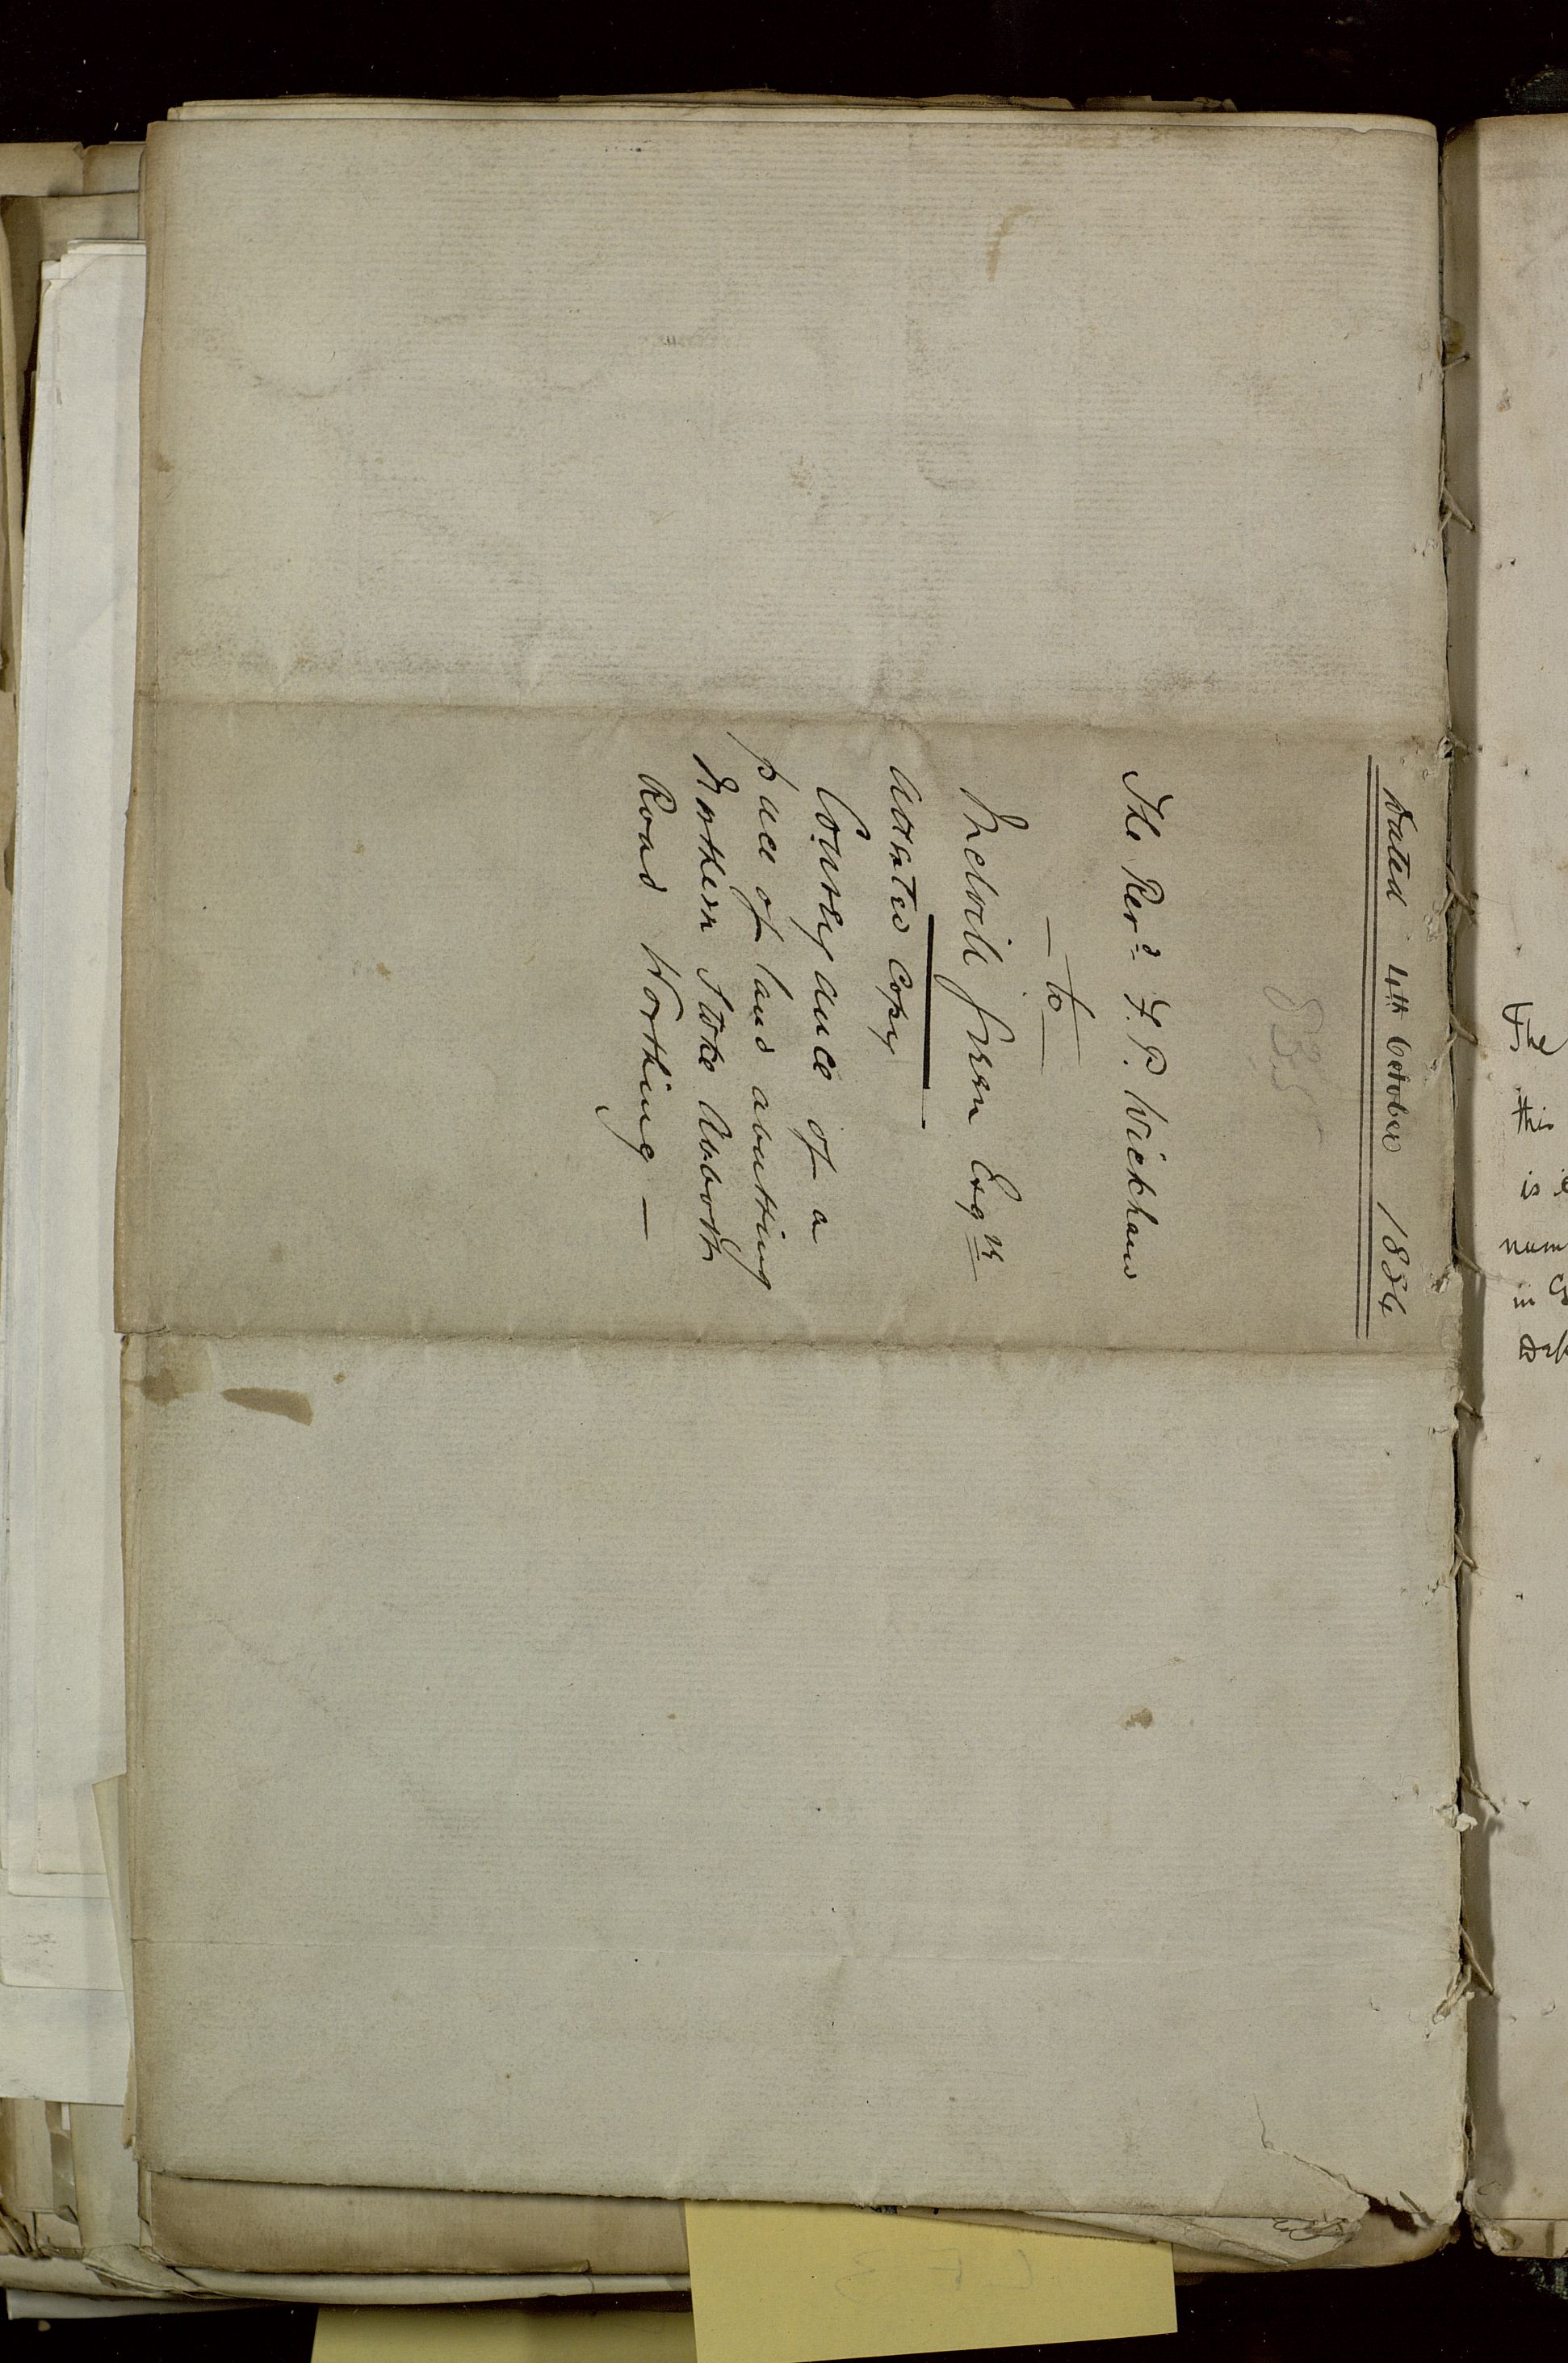 Dated 4th October 1884
835
The Revd. F. P. Wickham
— to —
Melvill Green Esqre
Attested Copy
Conveyance of a
piece of land abutting
Northern Stoke Abbott
Road Worthing —
The
this
is
num
in